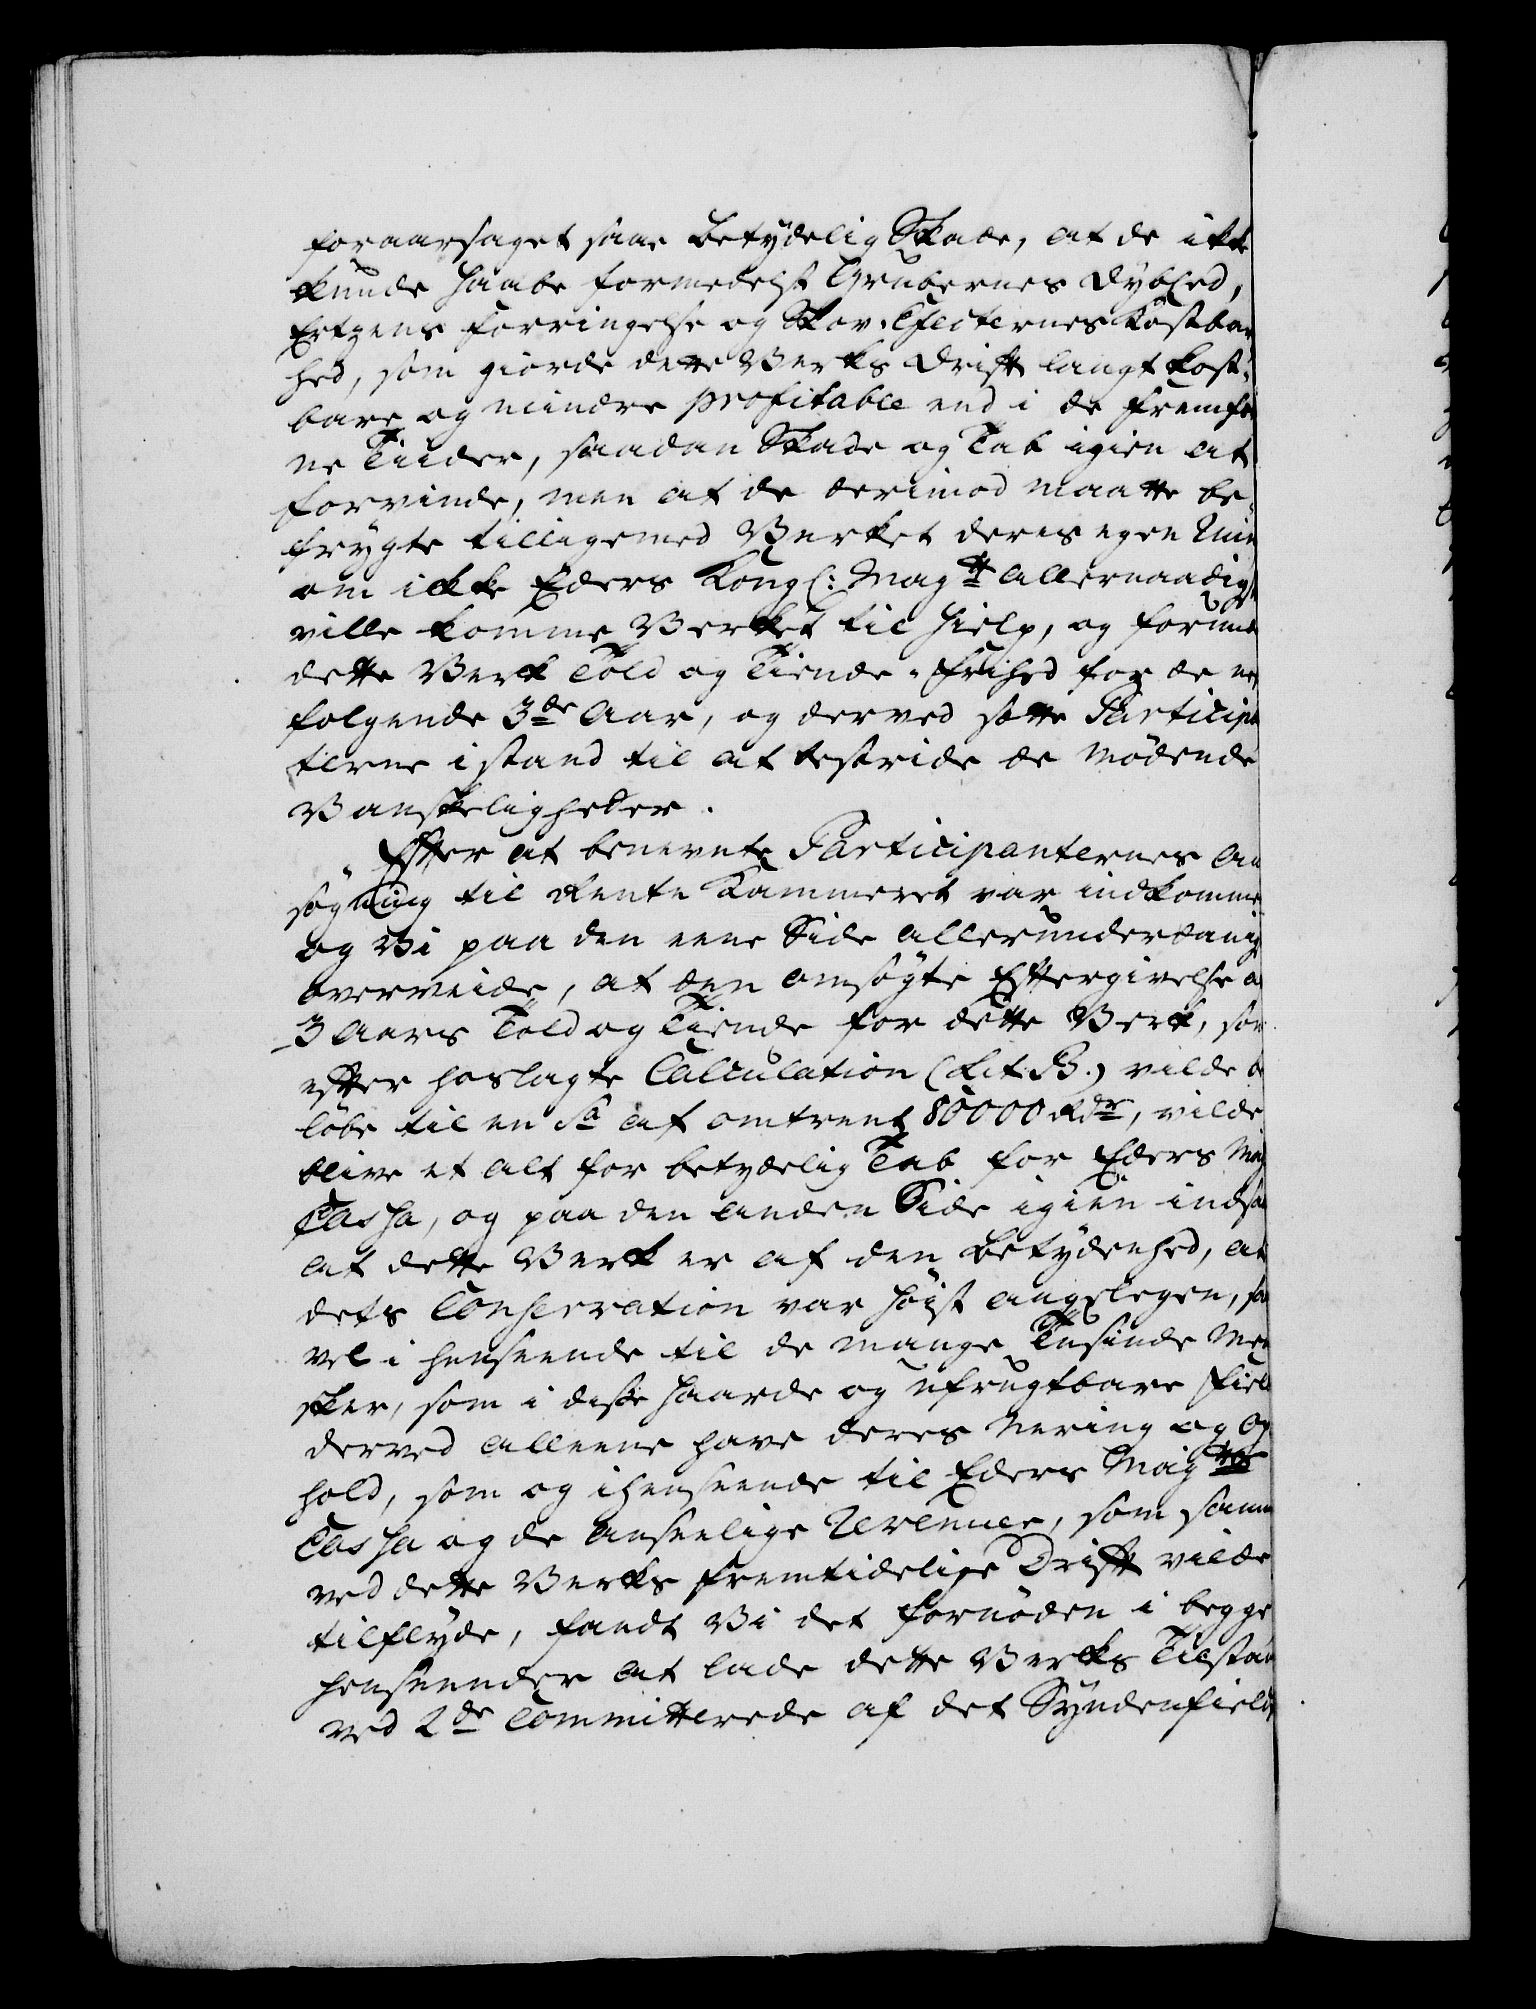 foraarsaget saa betydelig Skade, at de ikke
kunde haabe formedelst Grubernes Dybhed,
Ertzens Forringelse og Skov-Effecternes Kostbar
hed, som giorde dette Verks Drift langt kost-
bare og mindre profitable end i de fremfar
ne Tiider, saadan Skade og Tab igien at
forvinde, men at de derimod maatte be-
frygte tilligemed Verket deres egen Ruin
om ikke Eders Kongl: Mayt allernaadigst
ville komme Verket til Hielp, og forunde
dette Verk Told og Tiende-Frihed for de ne
folgende 3de Aar, og derved sætte Participan
terne i stand til at bestride de mödende
Vanskeligheder.
Efter at benevnte Participanternes An
sögning til Rente Kammeret var indkommen
og Vi paa den eene Side allerunderdanigst
overveide, at den ansögte Eftergivelse af
3 Aars Told og Tiende for dette Verk, som
efter hoslagte Calculation (Lit. B.) vilde be
löbe til en Sa af omtrent 80000 Rdr, vilde
blive et alt for betydelig Tab for Eders May
Cassa, og paa den anden Side igien indsaa
at dette Verk er af den Betydenhed, at
dets Conservation var höist angelegen, saa
vel i henseende til de mange Tusinde Men
sker, som i disse haarde og ufrugtbare Field
derved alleene have deres Nering og Op
hold, som og i henseende til Eders Mayts
Cassa og de anseelige Revenuer, som samme
ved dette Verks fremtidelige Drift vilde
tilflyde, fandt Vi det fornöden i begge
henseender at lade dette Verks Tilstand
ved 2de Committerede af det Syndenfield